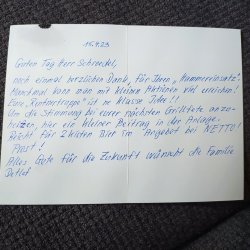 15.4.23
Guten Tag Herr Schroedel,
noch einmal herzlichen Dank, für Ihren "Hammereinsatz"
Manchmal kann man mit kleinen Aktionen viel erreichen!
Eure "Rentnertruppe" ist ne klasse Idee!!!
Um die Stimmung bei eurer nächsten Grilltete anzu-
heizen, hier ein kleiner Beitrag in der Anlage.
Reicht für 2 Kisten Bier im Angebot bei NETTO!
Prost!
Alles Gute für die Zukunft wünscht die Familie
Detlof